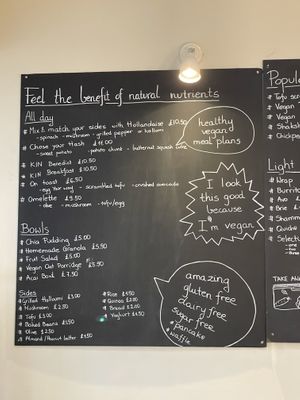 Feel the benefit of natural nutrients
All day
# Mix & match your sides with Hollandaise £10.50
- spinach - mushroom - grilled pepper or halloumi
# Chose your Hash
- sweet potato - potato chunk - butternut squash
# KIN Benedict £10.50
# KIN Breakfast £10.50
# On toast £6.50
- egg your way - scrambled tofu - crushed avocado
# Omelette £9.50
- olive - mushroom - tofu/egg
Bowls
# Chia Pudding £5.00
# Homemade Granola £5.50
# Fruit Salad £5.00
# Vegan Oat Porridge
# Acai Bowl £7.50
Sides
# Grilled Halloumi £3.00
# Mushroom £2.50
# Tofu £3.00
# Baked Beans £1.50
# Olive £2.50
# Almond/Peanut butter £1.50
# Rice £1.50
# Quinoa £2.00
# Bread £2.00
# Yoghurt £1.50
healthy
vegan
meal plans
I look
this good
because
I'm vegan
amazing
gluten free
dairy free
sugar free
# pancake
# waffle
Popula
# Tofu
# Vegan
# Vegan
# Shaksh
# Chickpea
Light
# Wrap
# Burrito
# Avo
# Brie
# Quiche
TAKE AW